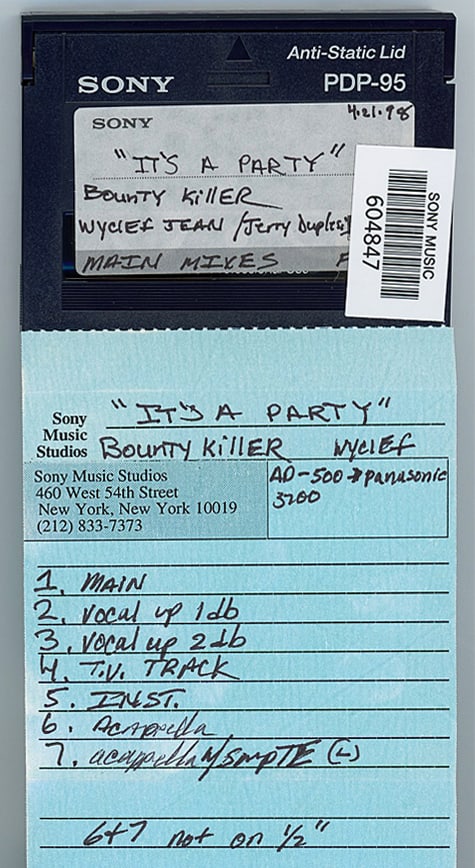 Anti-Static Lid
SONY PDP-95
SONY 4.21.98
"IT'S A PARTY"
BOUNTY KILLER
WYCLEF JEAN / Jerry Duplessi
MAIN MIXES
SONY MUSIC
604847
"IT'S A PARTY"
Sony
Music
Studios
BOUNTY KILLER WYCLEF
Sony Music Studios
460 West 54th Street
New York, New York 10019
(212) 833-7373
AD-500→panasonic
3700
1. MAIN
2. vocal up 1db
3. vocal up 2db
4. T.V. TRACK
5. INST.
6. Acappella
7. acappella w/SmpTE (L)
6+7 not on 1/2"